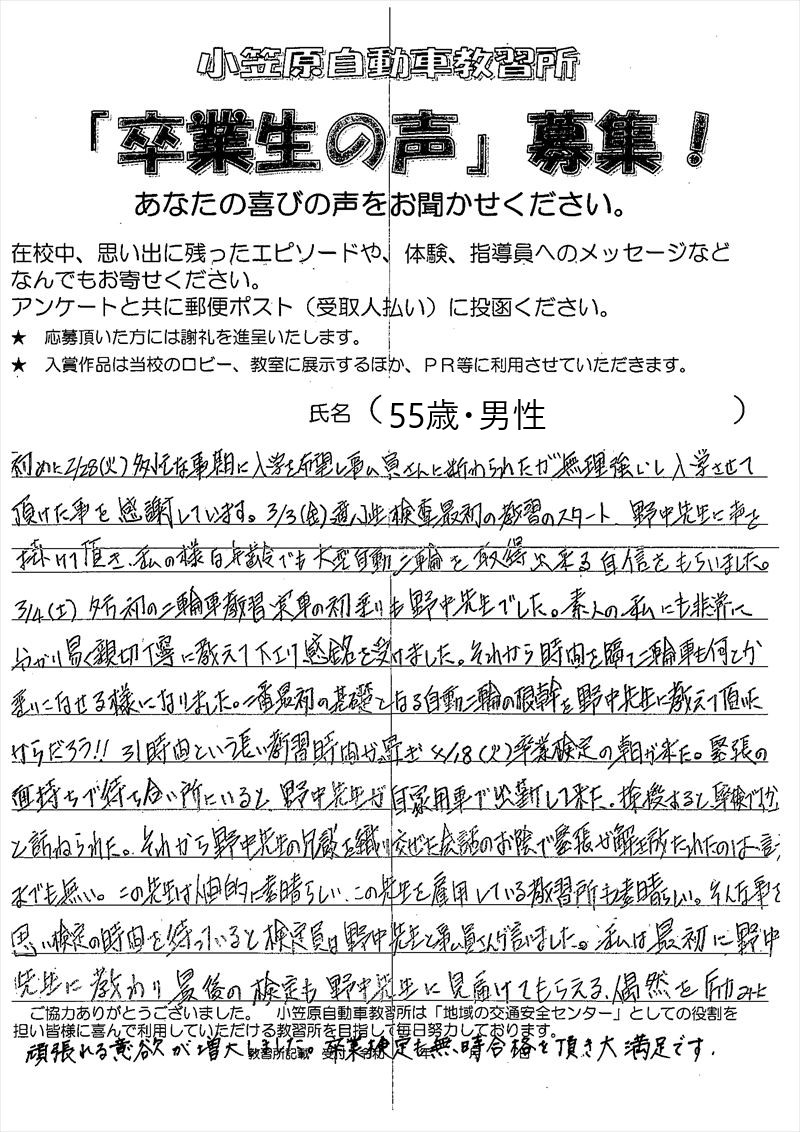 小笠原自動車教習所
「卒業生の声」募集！
あなたの喜びの声をお聞かせください。
在校中、思い出に残ったエピソードや、体験、指導員へのメッセージなど
なんでもお寄せください。
アンケートと共に郵便ポスト（受取人払い）に投函ください。
★　応募頂いた方には謝礼を進呈いたします。
★　入賞作品は当校のロビー、教室に展示するほか、ＰＲ等に利用させていただきます。
氏名（55歳・男性　）
初めに2/28(火)多忙な時期に入学を希望し事ム員さんに断わられたが無理強いし入学させて
頂けた事を感謝しています。3/3(金)適性検査最初の教習のスタート、野中先生に声を
掛けて頂き、私の様な年齢でも大型自動二輪を取得出来る自信をもらいました。
3/4(土)夕方初の二輪車教習実車の初乗りも野中先生でした。素人の私にも非常に
分かり易く親切丁寧に教えて下さり感銘を受けました。それから時間を臨て二輪車も何とか
乗りこなせる様になりました。一番最初の基礎となる自動二輪の根幹を野中先生に教えて頂いた
からだろう!!31時間という長い教習時間が過ぎ4/18(火)卒業検定の朝が来た。緊張の
面持ちで待ち合い所にいると野中先生が自家用車で出勤して来た。挨拶すると卒検ですか
と訪ねられた。それから野中先生の冗談を織り交ぜた会話のお陰で緊張が解き放たれたのは言う
までも無い。この先生は人間的に素晴らしい、この先生を雇用している教習所も素晴らしい。そんな事を
思い検定の時間を待っていると検定員は野中先生と事ム員さんが言いました。私は最初に野中
先生に教わり最後の検定も野中先生に見届けてもらえる、偶然を
ご協力ありがとうございました。　小笠原自動車教習所は「地域の交通安全センター」としての役割を
担い皆様に喜んで利用していただける教習所を目指して毎日努力しております。
頑張れる意欲が増大しました。卒業検定も無事合格を頂き大満足です。
教習所記載　受付　令和